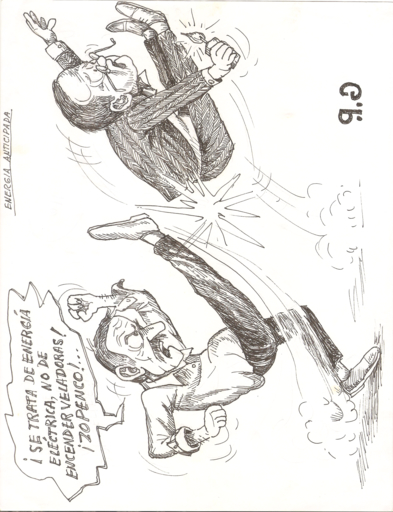 ENERGIA ANTICIPADA
¡SE TRATA DE ENERGIÁ
ELÉCTRICA, NO DE
ENCENDER VELADORAS!
¡ZOPENCO!...